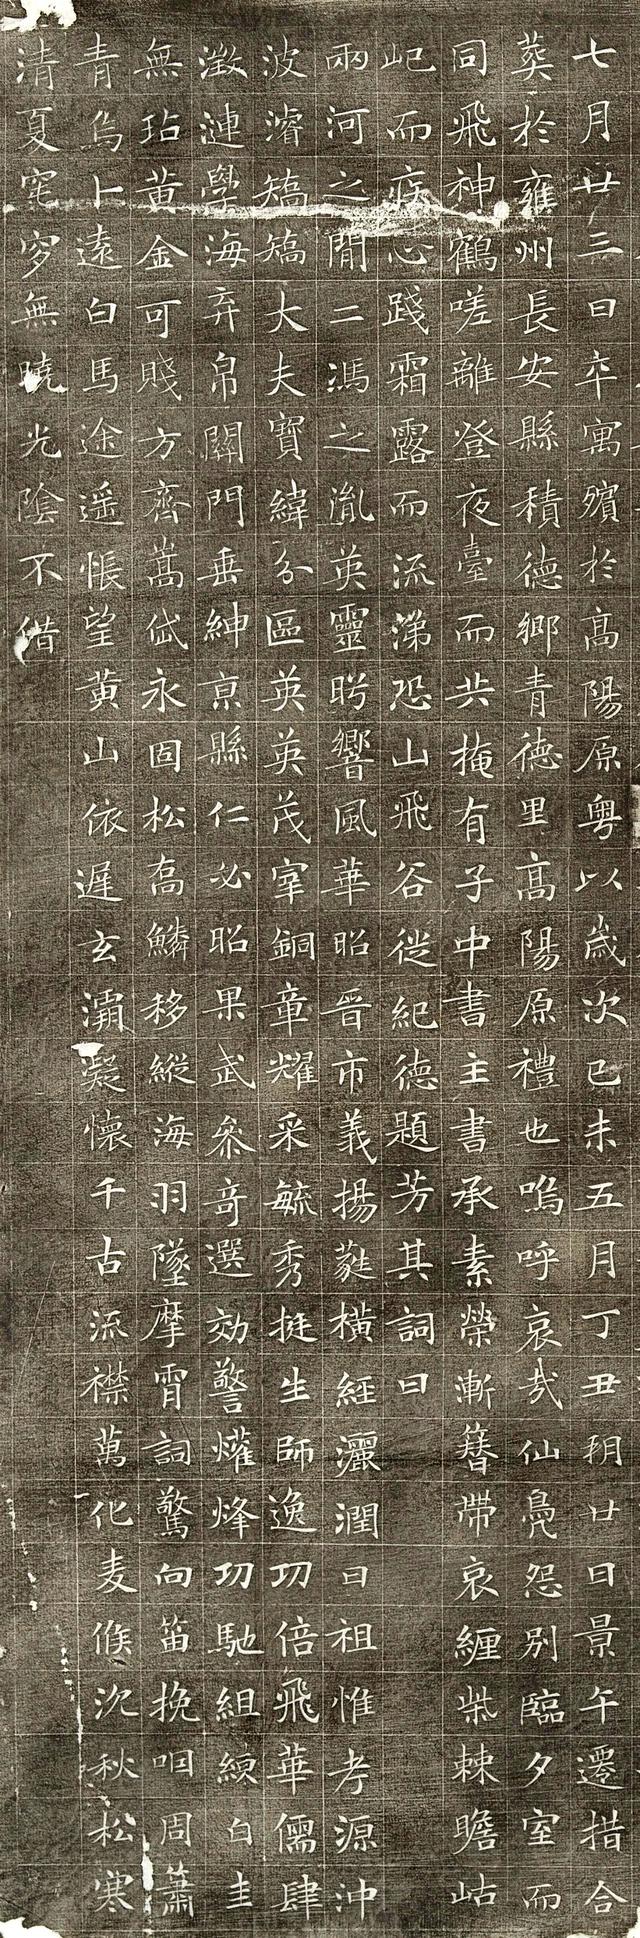 七月廿三日卒寓殯於高陽原粤以歲次己未五月丁丑朔廿日景午遷措合
葬於雍州長安縣積德鄉青德里高陽原禮也嗚呼哀哉仙鳧怨別臨夕室而
同飛神鶴嗟離登夜臺而共掩有子中書主書承素榮漸簪帶哀纏柴棘瞻岵
屺而疚心踐霜露而流涕恐山飛谷徙紀德題芳其詞曰
兩河之間二馮之胤英靈肹響風華昭晉市義揚蕤橫經灑潤曰祖惟考源沖
波濬矯矯大夫寶緯分區英英茂宰銅章耀采毓秀挺生師逸功倍飛華儒肆
激漣學海弃帛關門垂紳京縣仁必昭果武叅竒選効警燿烽功馳組綬白圭
無玷黄金可賤方齊嵩岱永固松髙鱗移縱海羽墜摩霄詞驚向笛挽咽周簫
青烏卜遠白馬途遥悵望黄山依遲玄灞凝懷千古流襟萬化麦候沉秋松寒
清夏窀穸無曉光陰不借